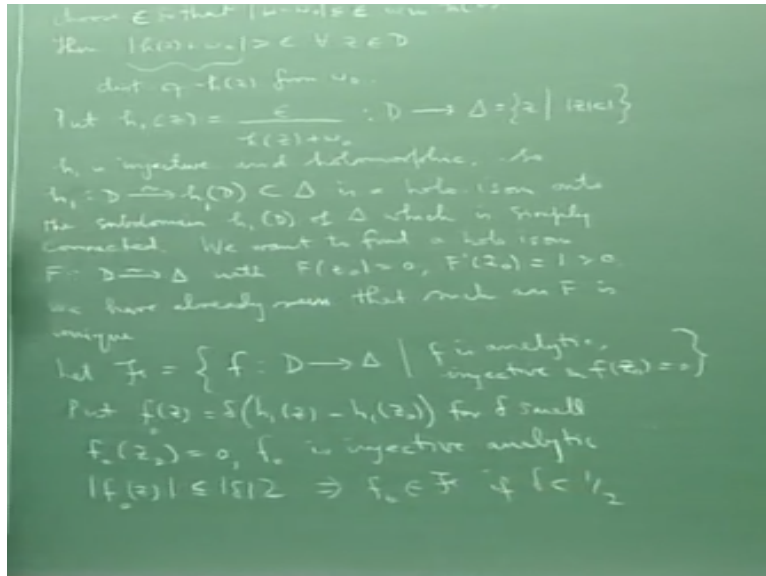 choose ε so that |w-w₀| ≤ ε
Then |h(z)+w₀| > ε ∀ z ∈ D
dist of -h(z) from w₀.
Put h₁(z) = ε / (h(z)+w₀) : D → Δ = {z | |z|<1}
h₁ is injective and holomorphic. So
h₁ : D ⥲ h₁(D) ⊂ Δ is a holo. isom onto
the subdomain h₁(D) of Δ which is simply
connected. We want to find a holo isom
F : D ⥲ Δ with F(z₀)=0, F'(z₀)=1 > 0.
We have already seen that such an F is
unique
Let ℱ = { f : D → Δ | f is analytic, injective & f(z₀)=0 }
Put f₀(z) = δ(h₁(z) - h₁(z₀)) for δ small
f₀(z₀) = 0, f₀ is injective analytic
|f₀(z)| ≤ |δ|2 ⇒ f₀ ∈ ℱ if δ < 1/2